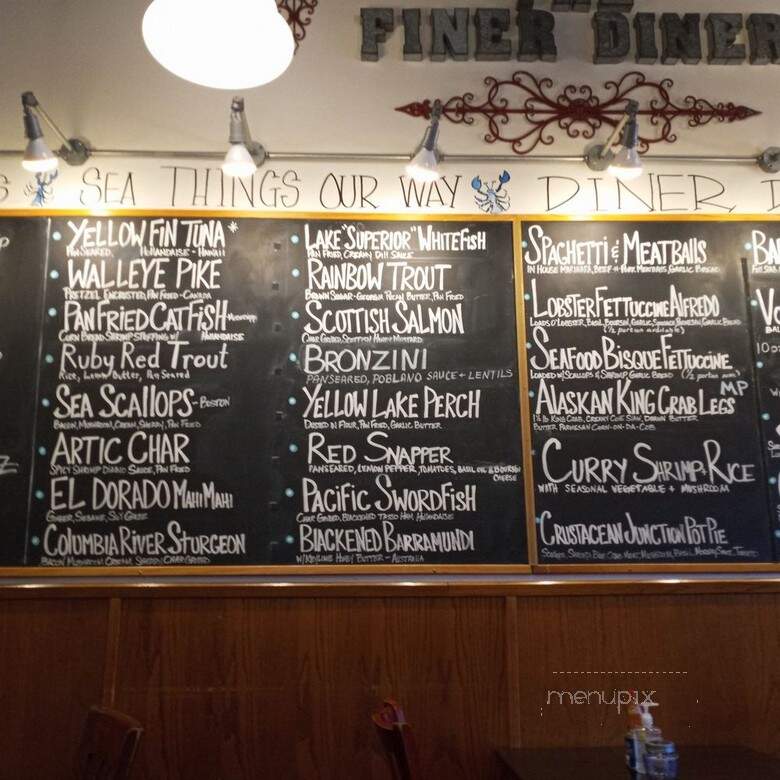 FINER DINER
SEA THINGS OUR WAY
DINER
YELLOW FIN TUNA*
PAN SEARED, HOLLANDAISE - HAWAII
WALLEYE PIKE
PRETZEL ENCRUSTED, PAN FRIED - CANADA
PAN FRIED CATFISH - Mississippi
CORN BREAD SHRIMP STUFFING W/ HOLLANDAISE
RUBY RED TROUT
Rice, Lemon Butter, Pan Seared
SEA SCALLOPS - BOSTON
BACON, MUSHROOM, CREAM, SHERRY, PAN FRIED
ARTIC CHAR
SPICY SHRIMP DIANO SAUCE, PAN FRIED
EL DORADO MAHI MAHI
GINGER, SESAME, SOY GLAZE
COLUMBIA RIVER STURGEON
BACON, MUSHROOM, CREAM, SHERRY, CHAR GRILLED
LAKE "SUPERIOR" WHITEFISH
PAN FRIED, CREAMY DILL SAUCE
RAINBOW TROUT
BROWN SUGAR - GEORGIA PECAN BUTTER, PAN FRIED
SCOTTISH SALMON
CHAR GRILLED, SCOTTISH HONEY MUSTARD
BRONZINI
PANSEARED, POBLANO SAUCE + LENTILS
YELLOW LAKE PERCH
DUSTED IN FLOUR, PAN FRIED, GARLIC BUTTER
RED SNAPPER
PANSEARED, LEMON PEPPER, TOMATOES, BASIL OIL & BOURSIN CHEESE
PACIFIC SWORDFISH
CHAR GRILLED, BLACKENED TASSO HAM, HOLLANDAISE
BLACKENED BARRAMUNDI
W/ KEYLIME HONEY BUTTER - AUSTRALIA
SPAGHETTI & MEATBALLS
IN HOUSE MARINARA, BEEF + PORK MEATBALLS, GARLIC BREAD
LOBSTER FETTUCCINE ALFREDO
LOADS O'LOBSTER, BASIL, BOURSIN, GARLIC, SPINACH, PARMESAN, GARLIC BREAD
(½ portion available)
SEAFOOD BISQUE FETTUCCINE
LOADED W/ SCALLOPS & SHRIMP, GARLIC BREAD (½ portion avail)
ALASKAN KING CRAB LEGS MP
1½ LB KING CRAB, CREAMY COLE SLAW, DRAWN BUTTER
BUTTER PARMESAN CORN-ON-DA-COB
CURRY SHRIMP & RICE
WITH SEASONAL VEGETABLE + MUSHROOM
CRUSTACEAN JUNCTION POT PIE
menupix